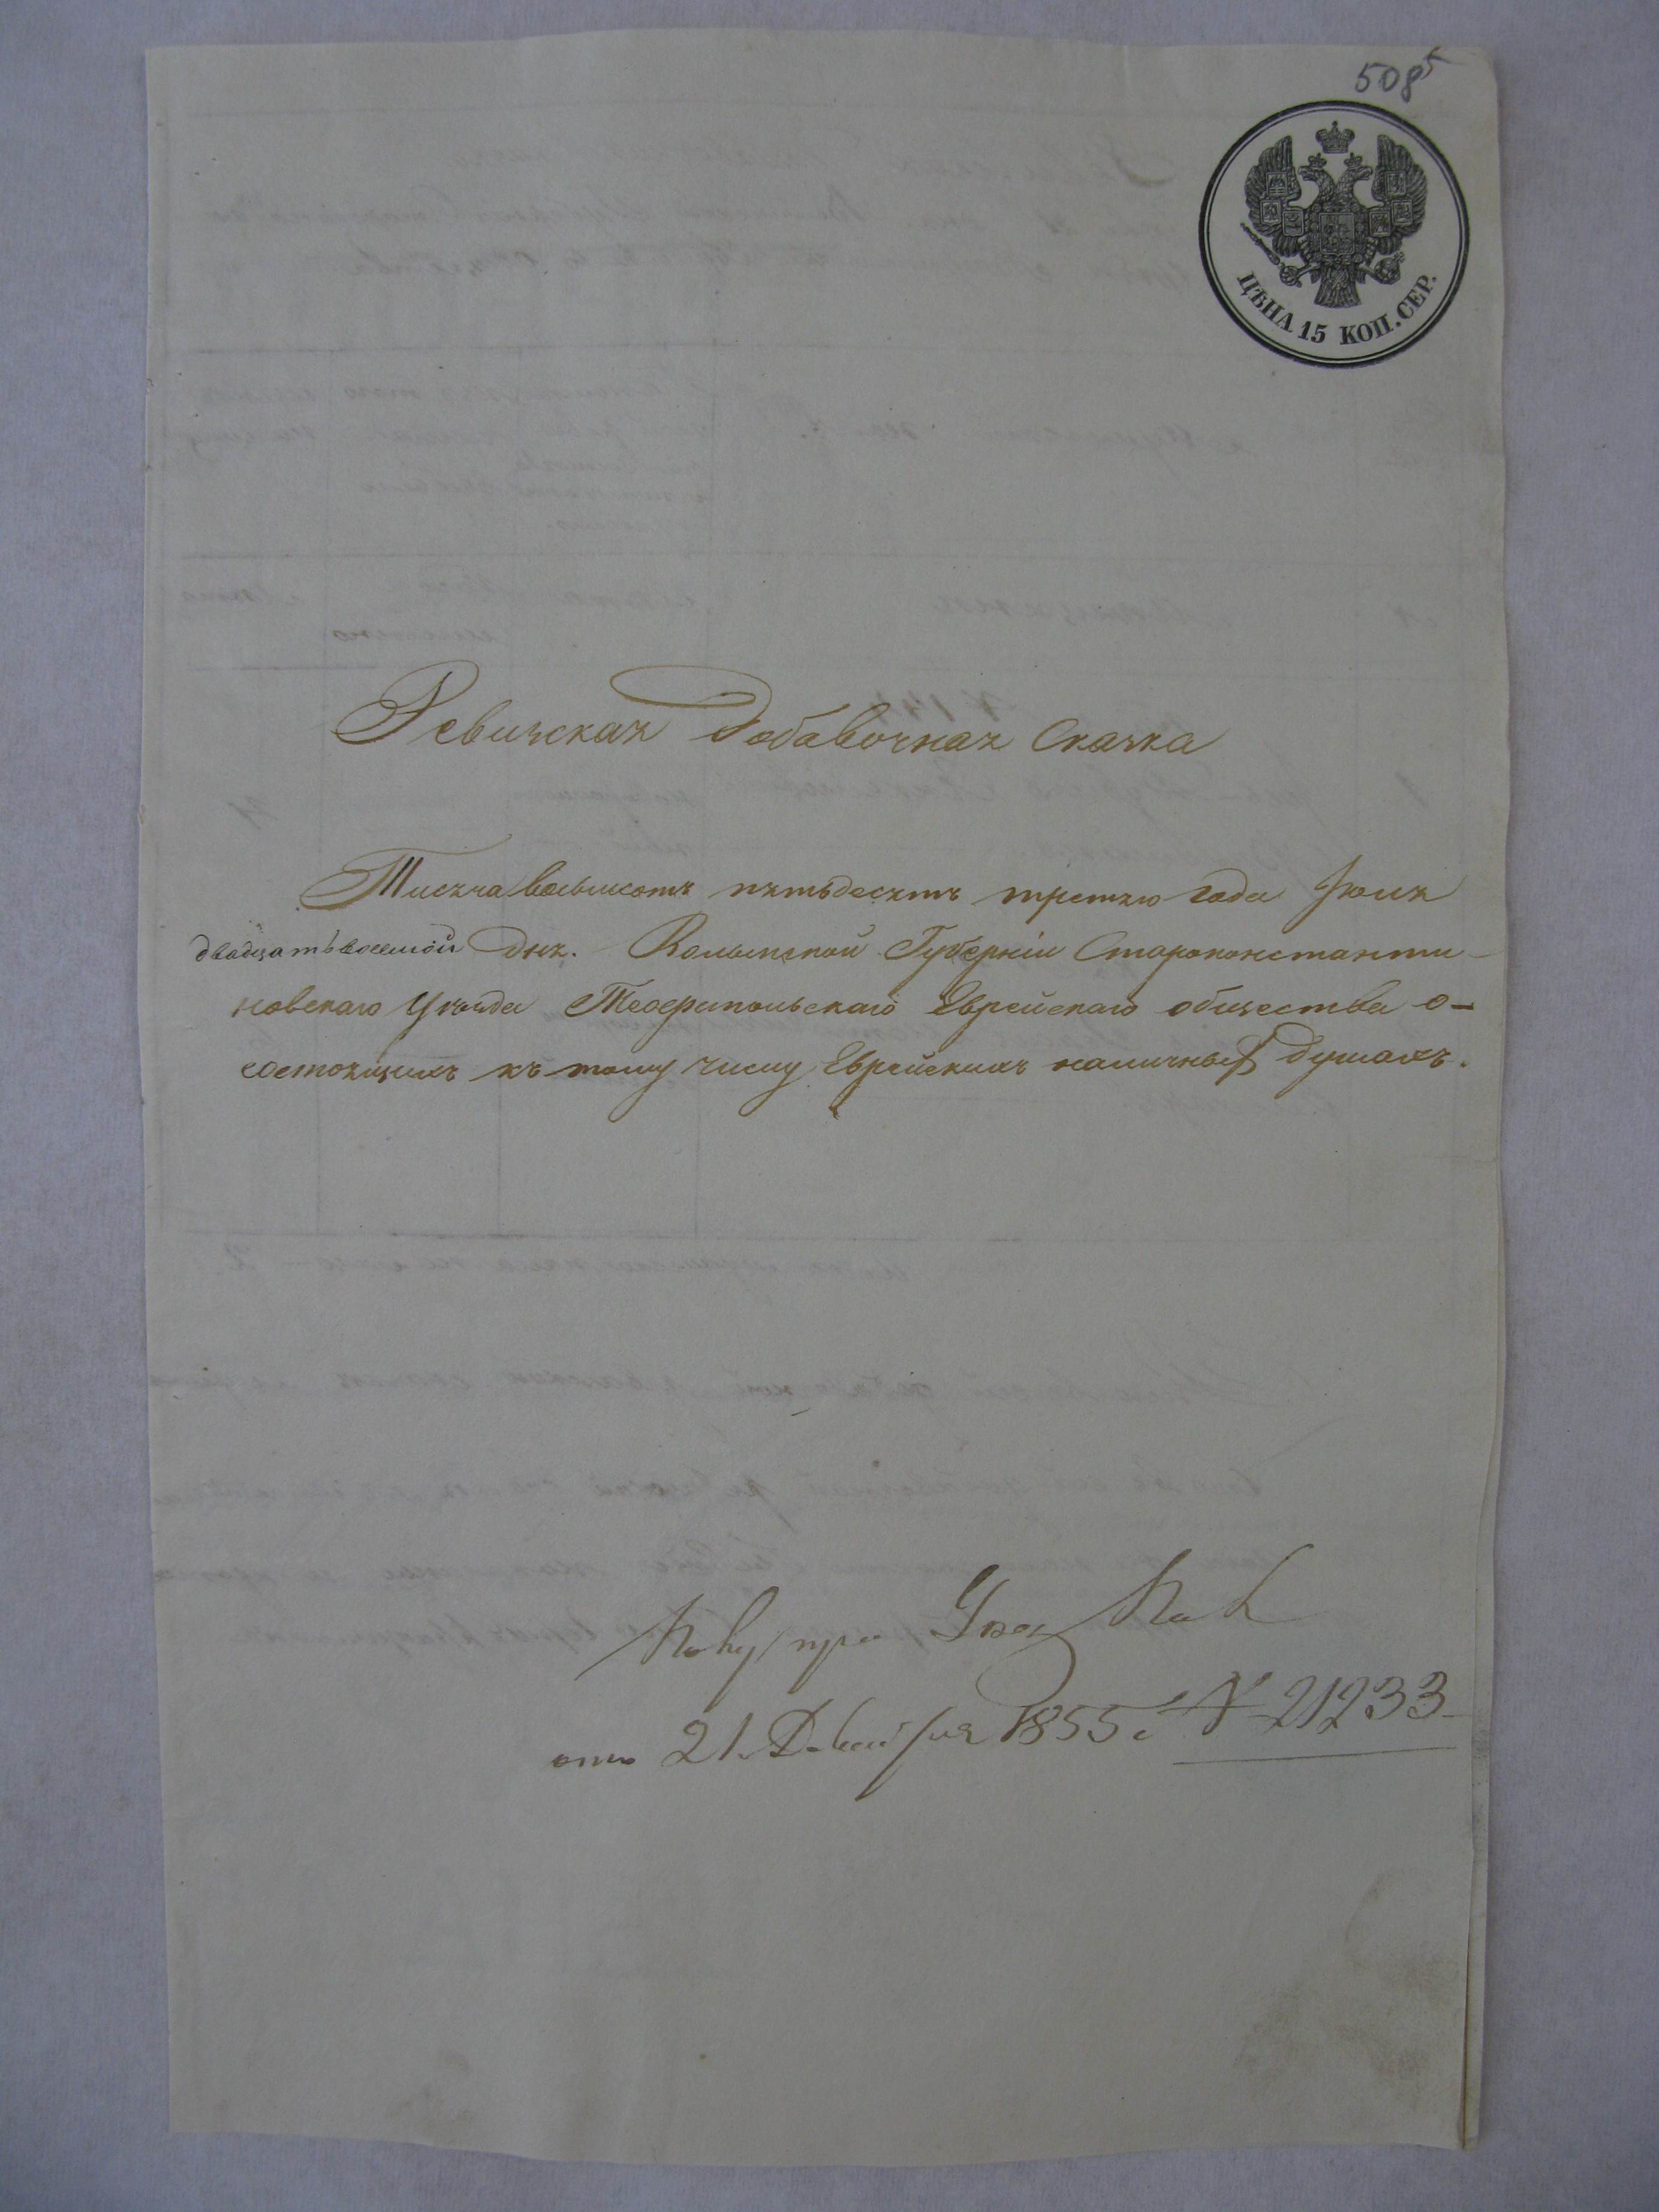 508⁵
ЦѢНА 15 КОП. СЕР.
Ревизская Добавочная Сказка
Тисяча восьмсотъ пятьдесятъ третяго года Июля
двадцатьвосемой дня. Волынской Губерніи Староконстанти-
новскаго Уезда Теофипольскаго Еврейскаго общества о-
состоящихъ къ тому числу Еврейскихъ наличных душахъ.
при
отъ 21 Декабря 1855 г № 21233